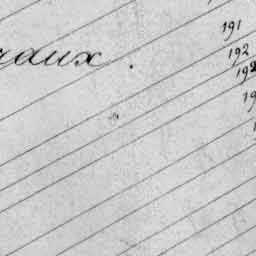 raux.
191
192
192
19